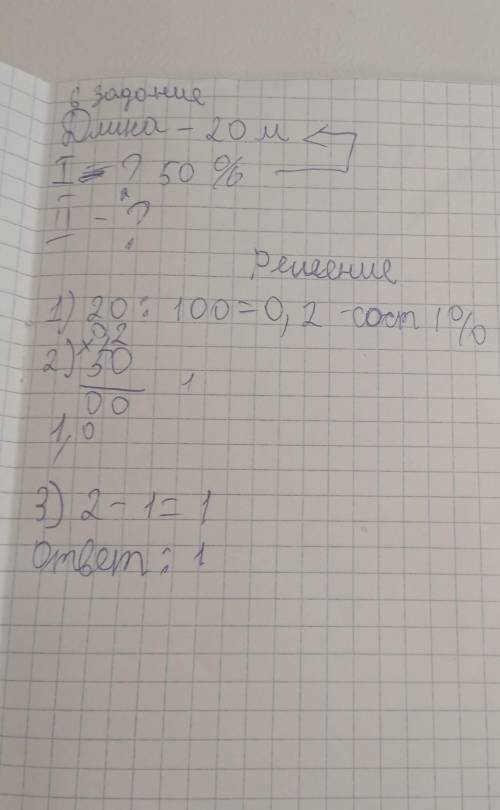 6 задание
Длина – 20 м
I – ? 50 %
II – ?
Решение
1) 20 : 100 = 0,2 – сост 1%
2) × 0,2
50
00
1,0
3) 2 – 1 = 1
Ответ : 1